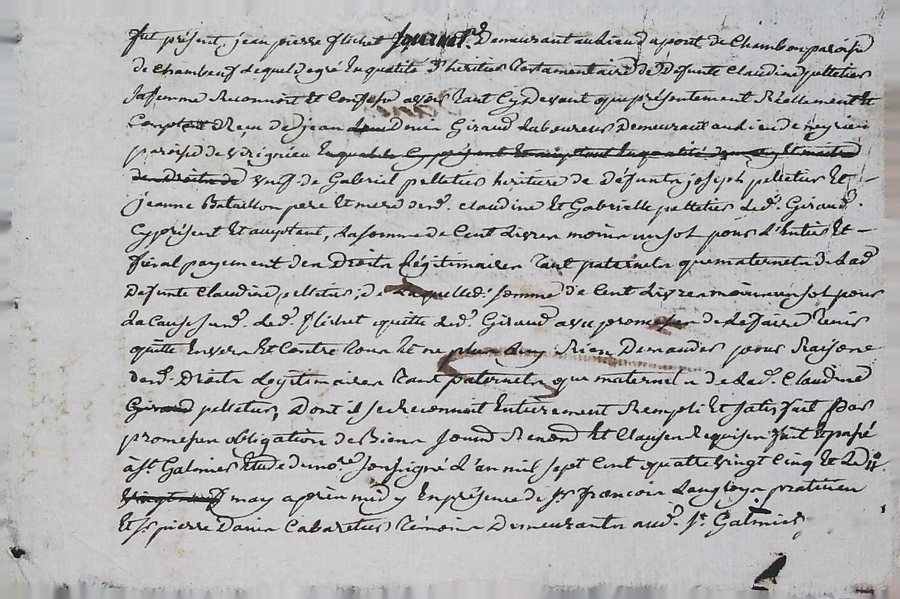 fut présent jean pierre flichet Journal.r Demeurant au lieu du pont de Chambon paroisse
de Chambeuf lequel degré En qualité d'heritier Testamentaire de Défunte Claudine pelletier
Sa femme Reconnoit Et Confesse avoir Tant Cy Devant que présentement Réellement Et
Comptant Receu de jean Giraud Laboureur Demeurant au lieu de
paroisse de virignieu
veuf de Gabriel pelletier heritiere de Défunts joseph pelletier Et
jeanne Bataillon pere Et mere desd. Claudine Et Gabrielle pelletier led. Giraud
Cy présent Et acceptant, La somme de Cent Livres moins un sol pour L'Entier Et
final payement des Droits Légitimaires Tant paternels que maternels de Lad.
Défunte Claudine pelletier, de Laquelle d. somme de Cent Livres moins un sol pour
La Cause susd. Led. flichet quitte Led. Giraud avec promesse de Le faire Tenir
quitte Envers Et Contre Tous Et ne plus Luy Rien Demander pour Raison
desd. Droits Légitimaires Tant paternels que maternels de Lad. Claudine
Giraud pelletier, Dont il se reconnoit Entierement Rempli Et Satisfait Par
promesses obligation de Biens Soumd. Renond. Et Clauses Requises fait Et passé
à St. Galmier Etude du no.re Soussigné L'an mil sept Cent quatre vingt Cinq Et Le D. 11
may après midy En présence de Sr. francois Langlois praticien
Et Sr. pierre Cabaretier Temoins Demeurants aud. St. Galmier